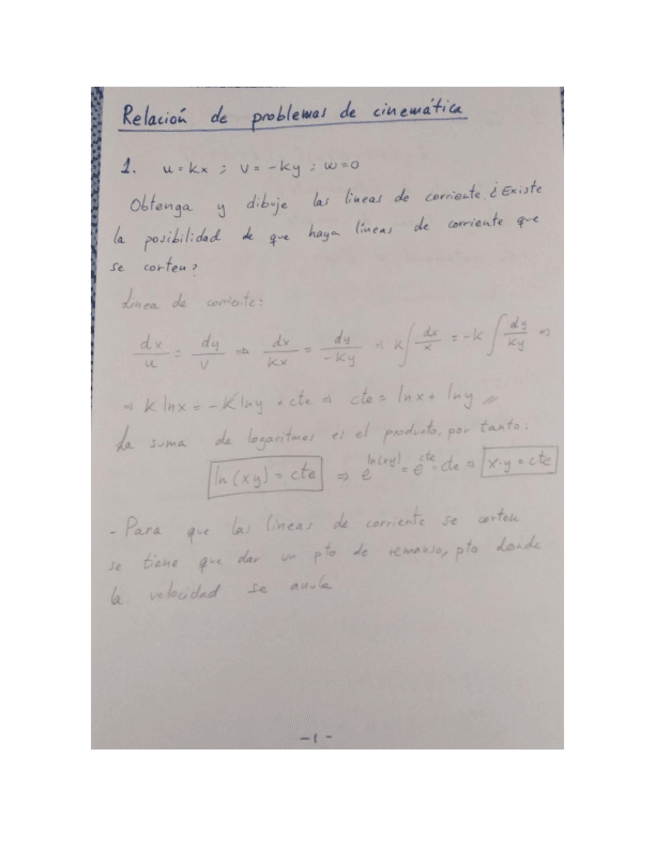 Relación de problemas de cinemática
1. u=kx ; v=-ky ; w=0
Obtenga y dibuje las líneas de corriente. ¿Existe
la posibilidad de que haya líneas de corriente que
se corten?
Línea de corriente:
dx/u = dy/v ⇒ dx/kx = dy/-ky ⇒ k∫dx/x = -k∫dy/ky ⇒
⇒ k lnx = -k lny + cte ⇒ cte = lnx + lny //
La suma de logaritmos es el producto, por tanto:
ln(xy) = cte ⇒ e^ln(xy) = e^cte = cte ⇒ x·y = cte
- Para que las líneas de corriente se corten
se tiene que dar un pto de remanso, pto donde
la velocidad se anula
-1-